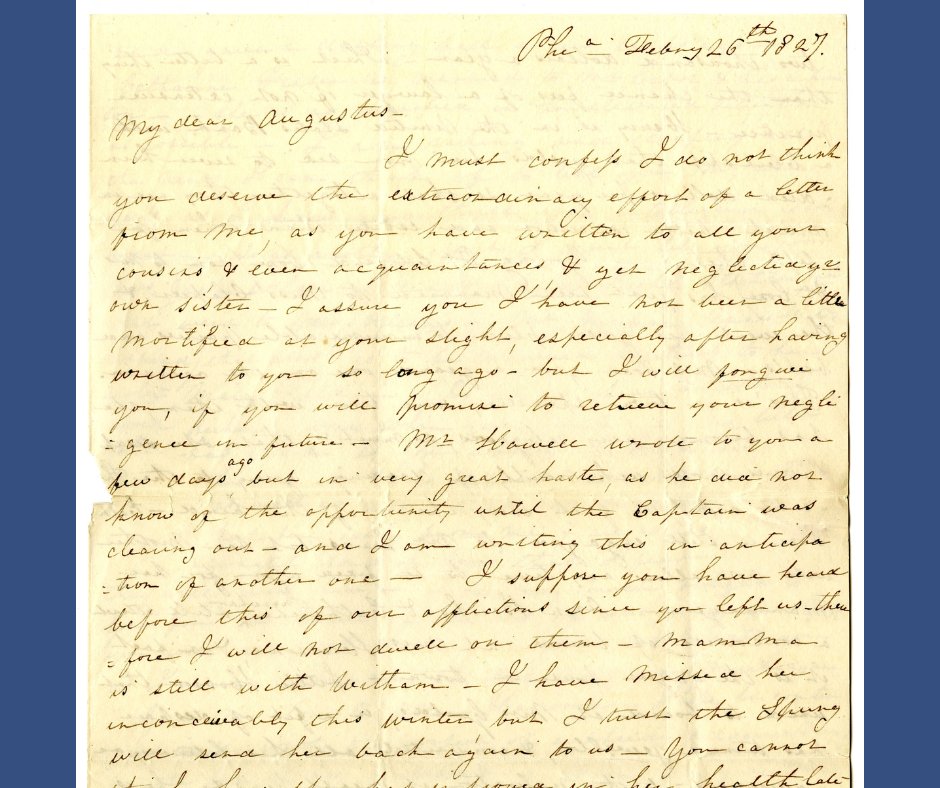 Phe a Febry 26th 1827.
My dear Augustus-
I must confess I do not think
you deserve the extraordinary effort of a letter
from me, as you have written to all your
cousins, & even acquaintances, & yet neglected yr
own sister - I assure you I have not been a little
mortified at your slight, especially after having
written to you so long ago - but I will forgive
you, if you will promise to retrieve your negli
=gence in future - Mr Howell wrote to you a
few days ago but in very great haste, as he did not
know of the opportunity until the Captain was
clearing out - and I am writing this in anticipa
=tion of another one - I suppose you have heard
before this of our afflictions since you left us - there
=fore I will not dwell on them - Mamma
is still with Witham - I have missed her
inconceivably this winter but I trust the Spring
will send her back again to us - You cannot
in her health late